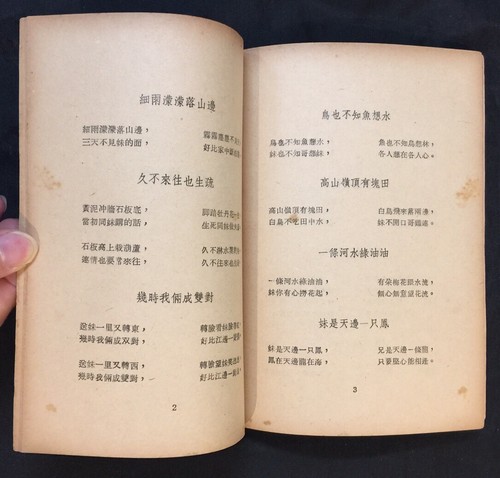 細雨濛濛落山邊
細雨濛濛落山邊，
三天不見妹的面，
好比家中
久不來往也生疏
黃泥冲牆石板底，
當初同妹講的話，
脚踏牡丹花
生死同妹
石板高上栽葫蘆，
連情也要常來往，
久不淋水
久不往來也
幾時我倆成雙對
送妹一里又轉東，
幾時我倆成双對，
轉臉看妹臉
好比江邊一
送妹一里又轉西，
幾時我倆成雙對，
轉臉望妹
好比江邊一
2
鳥也不知魚想水
鳥也不知魚想水，
魚也不知鳥想林，
妹也不知哥想妹，
各人想在各人心。
高山嶺頂有塊田
高山嶺頂有塊田，
白鳥飛來落兩邊，
白鳥不吃田中水，
妹不開口哥難連。
一條河水綠油油
一條河水綠油油，
有朵梅花順水流，
妹你有心撈花起，
無意望花流。
妹是天邊一只鳳
妹是天邊一只鳳，
兄是海邊一條龍，
鳳在天邊龍在海，
只要龍心能相逢。
3